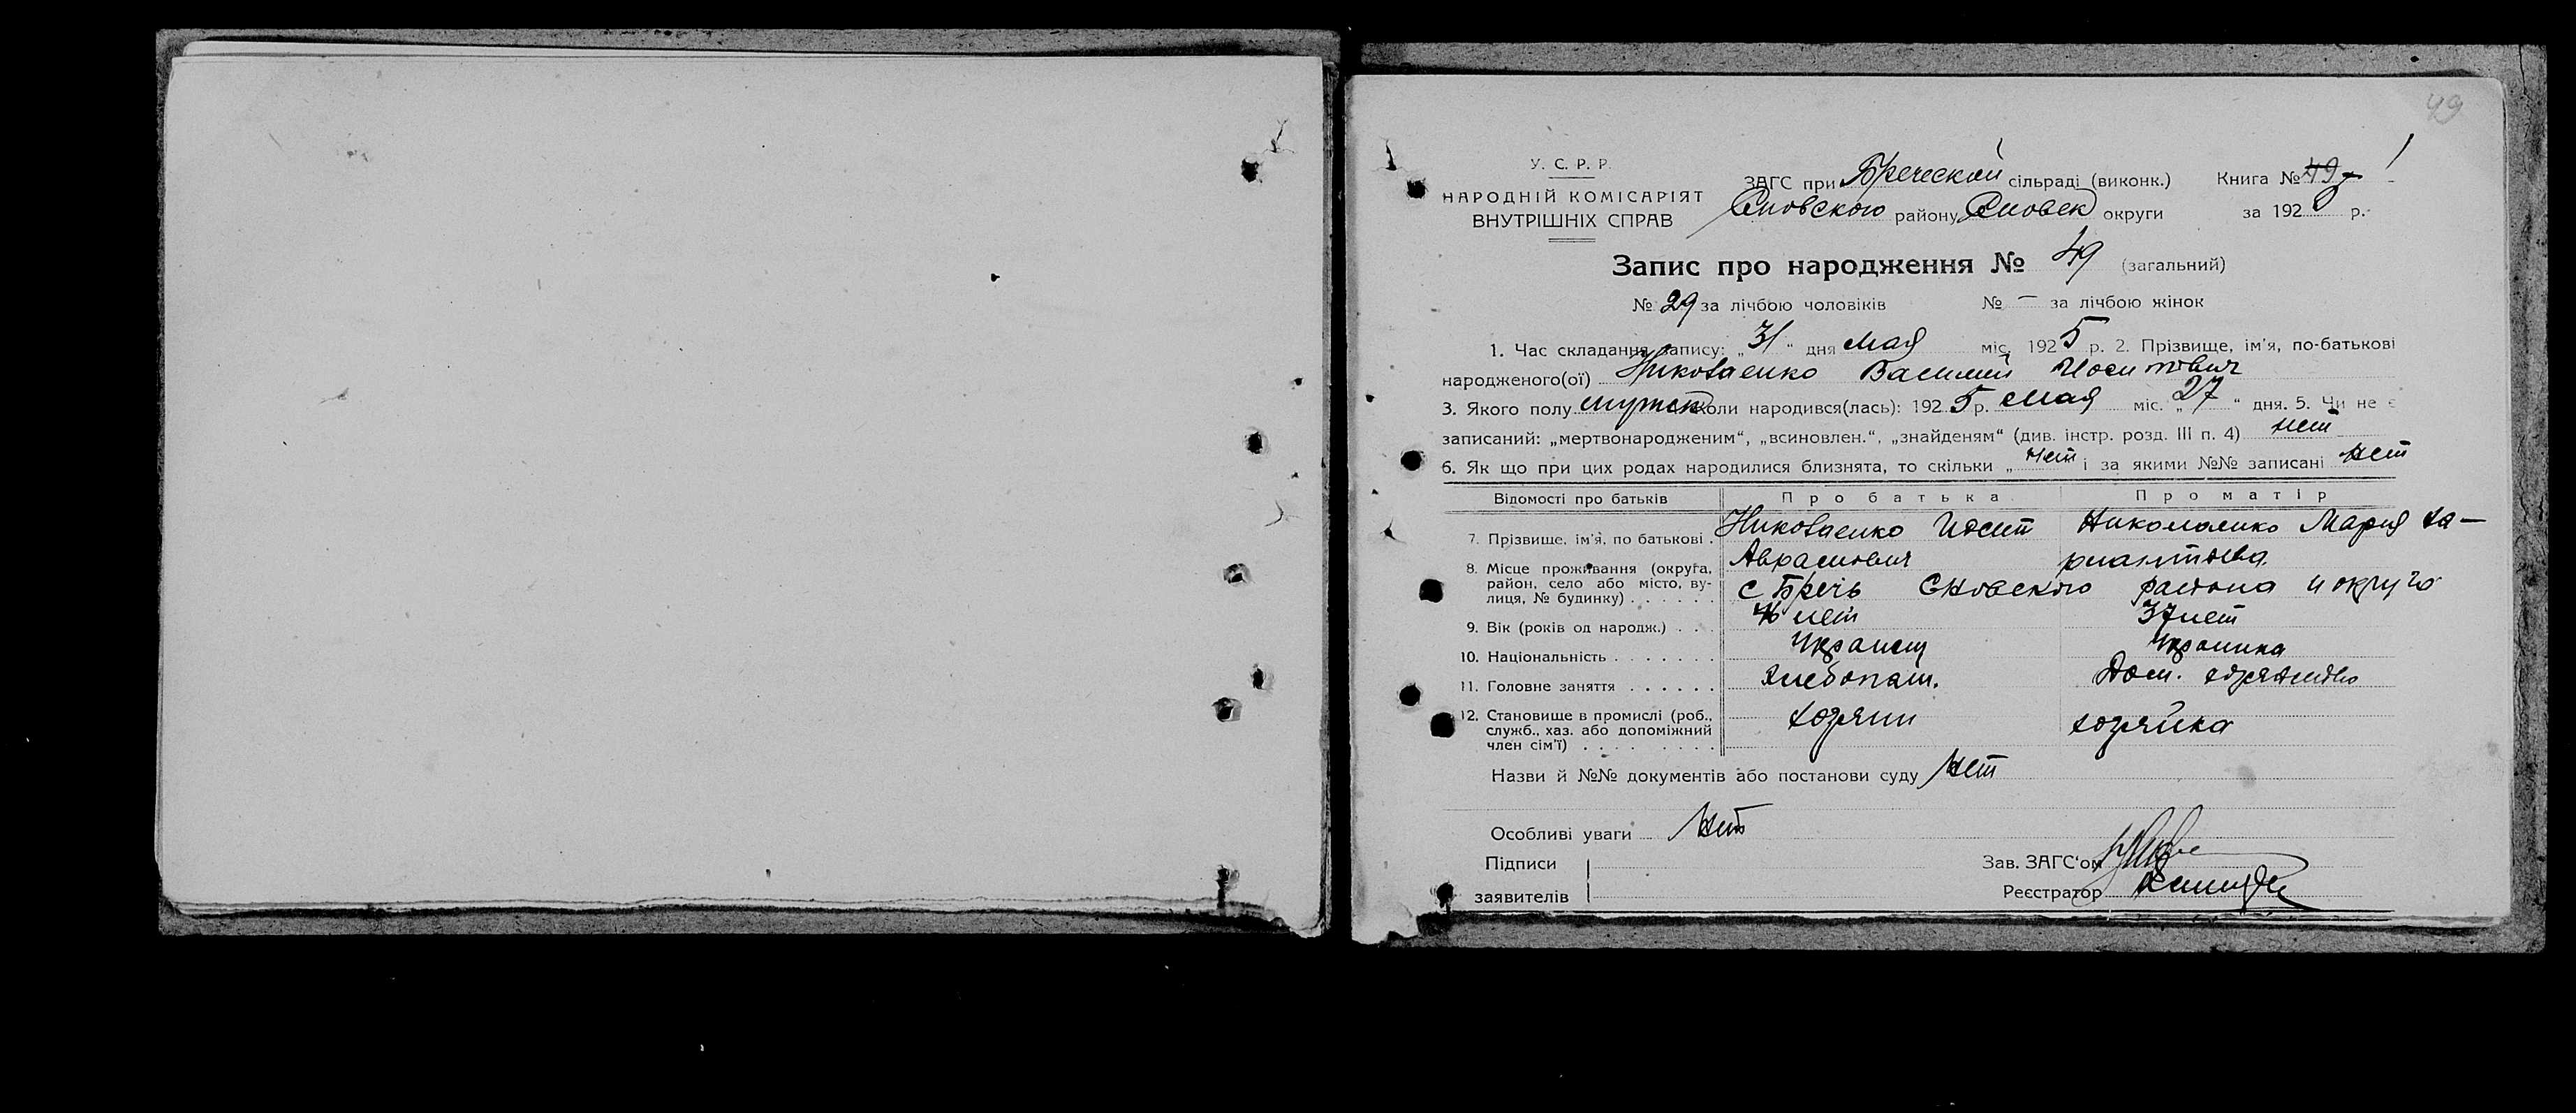 49
У. С. Р. Р.
НАРОДНІЙ КОМІСАРІЯТ
ВНУТРІШНІХ СПРАВ
ЗАГС при Бреческой сільраді (виконк.) Книга № 49 1
Сновского району Сновск округи за 192 р.
Запис про народження № 49 (загальний)
№ 29 за лічбою чоловіків № — за лічбою жінок
1. Час складання запису: „31“ дня мая міс. 1925 р. 2. Прізвище, ім’я, по-батькові
народженого(ої) Николаенко Василий Иосипович
3. Якого полу мужск коли народився(лась): 1925 р. мая міс. „27“ дня. 5. Чи не є
записаний: „мертвонародженим“, „всиновлен.“, „знайденям“ (див. інстр. розд. III п. 4) нет
6. Як що при цих родах народилися близнята, то скільки „нет і за якими №№ записані нет
Відомості про батьків Про батька Про матір
7. Прізвище, ім’я, по батькові . Николаенко Иосип Николаенко Мария Ха-
Аврамович
8. Місце проживання (округа, район, село або місто, ву-
лиця, № будинку) . . . . . . с Бречь Сновского района и округа
9. Вік (років од народж.) . . . лет 37 лет
10. Національність . . . . . . . Украинец Украинка
11. Головне заняття . . . . . . Хлебопаш. Дом.
12. Становище в промислі (роб., служб., хаз. або допоміжний
член сім’ї) . . . . . . . . хозяин хозяйка
Назви й №№ документів або постанови суду нет
Особливі уваги нет
Підписи
заявителів
Зав. ЗАГС‘ом
Реєстратор